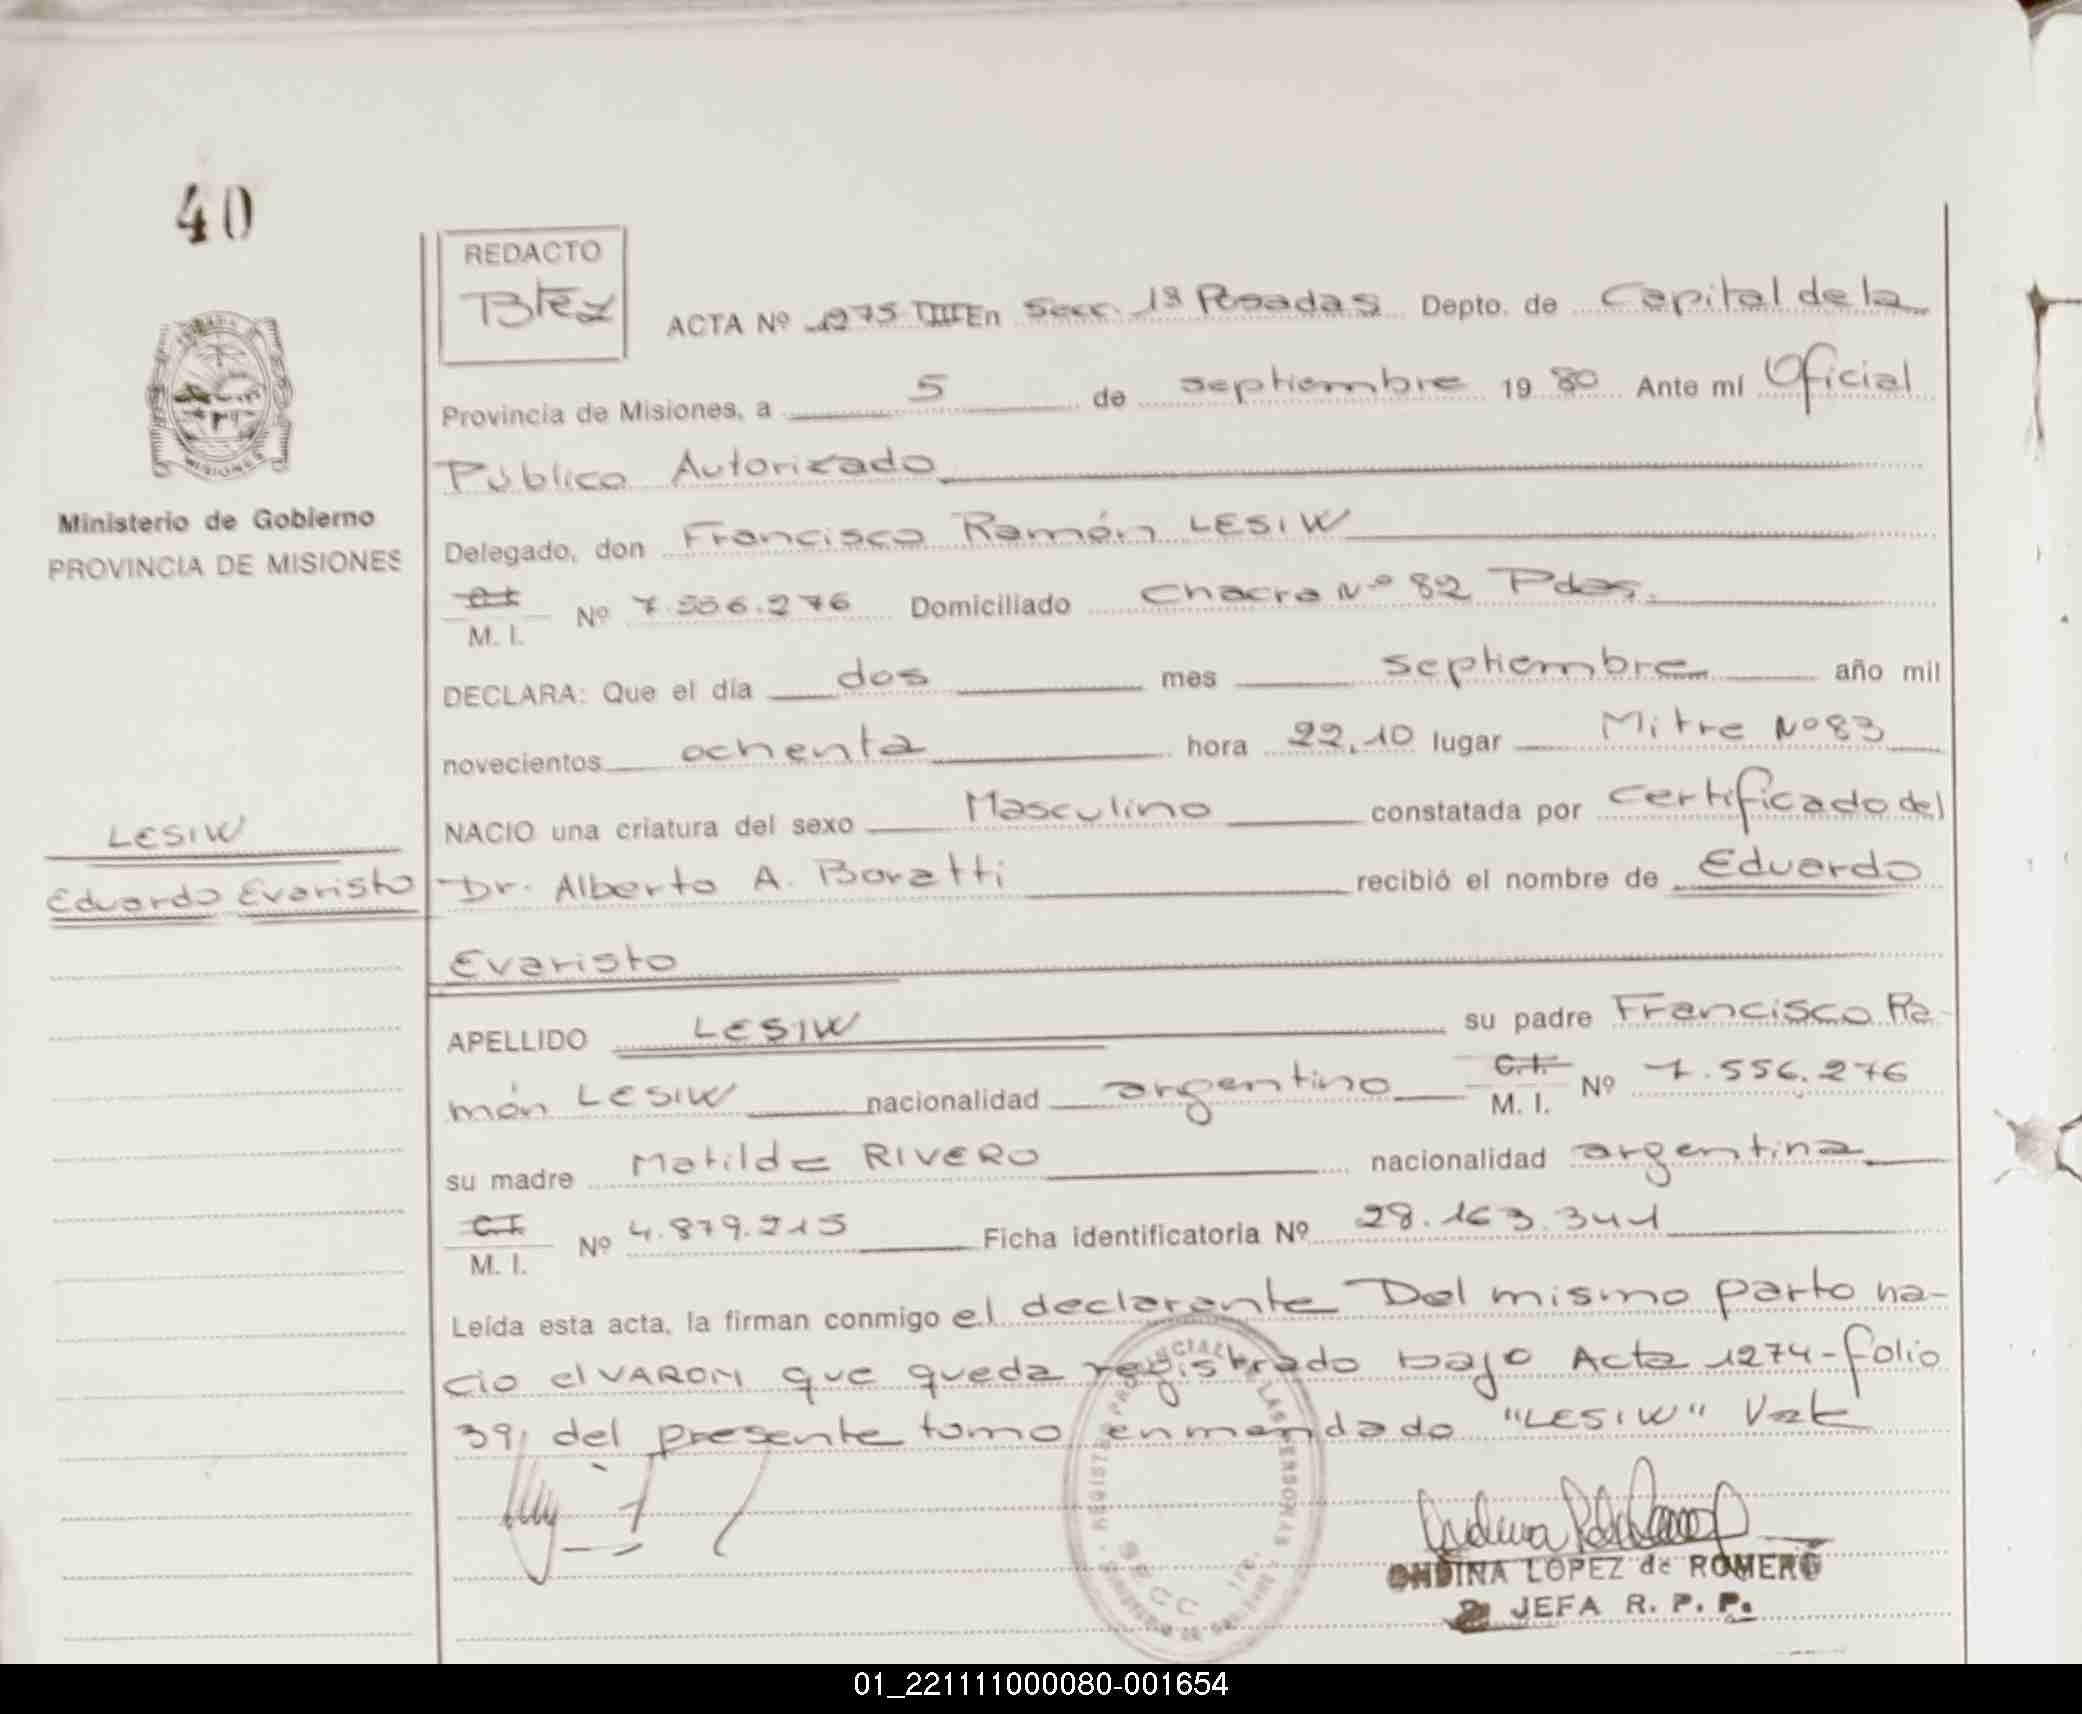 40
REDACTO
ACTA Nº 1275 TIII En Secc. 1ª Posadas Depto. de Capital de la
Provincia de Misiones, a 5 de septiembre 19 80 Ante mí Oficial
Público Autorizado
MISIONES
Ministerio de Gobierno
PROVINCIA DE MISIONES
Delegado, don Francisco Ramón LESIW
C.I. M. I. Nº 7.556.276 Domiciliado Chacra Nº 82 Pdas.
DECLARA: Que el día dos mes septiembre año mil
novecientos ochenta hora 22,10 lugar Mitre Nº 83
NACIO una criatura del sexo Masculino constatada por certificado del
LESIW
Eduardo Evaristo
Dr. Alberto A. Boratti recibió el nombre de Eduardo
Evaristo
APELLIDO LESIW su padre Francisco Ra-
món LESIW nacionalidad argentino C.I. M. I. Nº 7.556.276
su madre Matilde RIVERO nacionalidad argentina
C.I. M. I. Nº 4.879.215 Ficha identificatoria Nº 28.163.341
Leída esta acta, la firman conmigo el declarante Del mismo parto na-
cio el VARON que queda registrado bajo Acta 1274-folio
39, del presente tomo enmendado "LESIW" Vale
ONDINA LOPEZ de ROMERO
JEFA R. P. P.
01_221111000080-001654